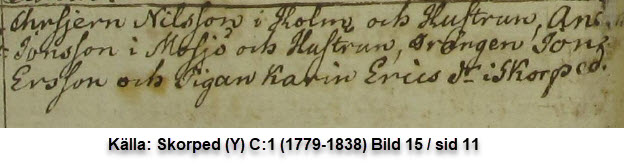 Chrsjern Nilsson i Holm och Hustrun, And:
Jonsson i Mosjö och Hustrun, Drängen Jon
Ersson och Pigan Karin Erics dr i Skorped.
Källa: Skorped (Y) C:1 (1779-1838) Bild 15 / sid 11